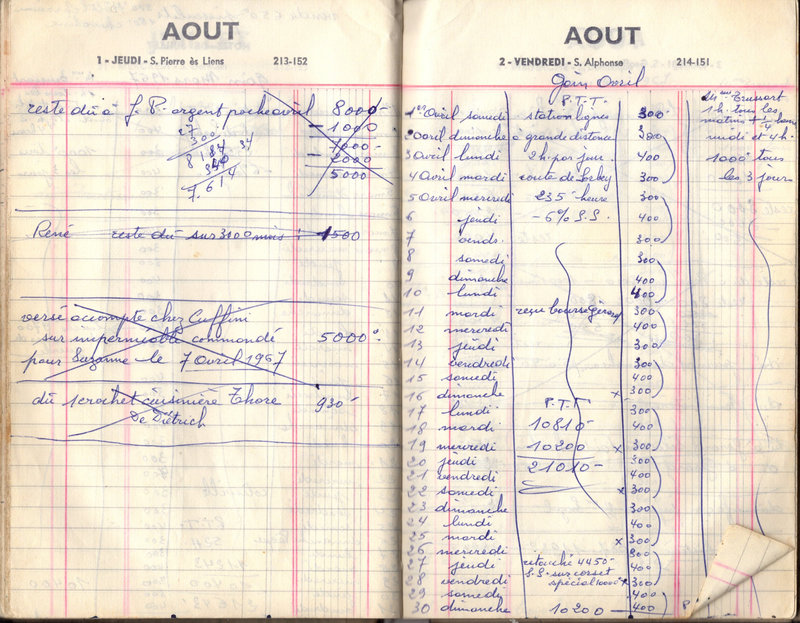 AOUT
1 - JEUDI - S. Pierre ès Liens 213-152
reste dû à J. P. argent poche avril 8000-
27 - 1000
300. 1000-
8184 34 - 2000
340 5000
7.614
René reste dû sur 3100 mois : 1500
versé accompte chez Cuffini
sur imperméable commandé 5000°
pour Suzanne le 7 Avril 1957
dû 1 crochet cuisinière Thore 930-
De Diétrich
AOUT
2 - VENDREDI - S. Alphonse 214-151
Gain Avril
P.T.T.
1er Avril samedi station lignes 300
2 avril dimanche à grande distance 300
3 Avril lundi 2 h. par jour. 400
4 Avril mardi route de 300
5 Avril mercredi 235- heure 300
6 jeudi - 6% S.S. 400
7 vends. 300
8 samedi 300
9 dimanche 400
10 lundi 400
11 mardi reçu bourse Gérard 300
12 mercredi 400
13 jeudi 300
14 vendredi 300
15 samedi 400
16 dimanche x 300
17 lundi P.T.T. 300
18 mardi 10810- 400
19 mercredi 10200 x 300
20 jeudi 21010- 300
21 vendredi 400
22 samedi x 300
23 dimanche 300
24 lundi 400
25 mardi x 300
26 mercredi 300
27 jeudi retouché 4450- 400
28 vendredi S.S. sur corset spécial 10000- x 300
29 samedi 400
30 dimanche 10200 - 400
Trussart
1 h. tous les
matins + 1/4 heure
midi et 4 h.
1000- tous
les 3 jours